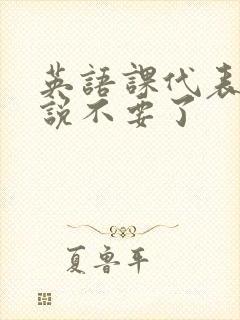 英語課代表
說不要了
夏魯平